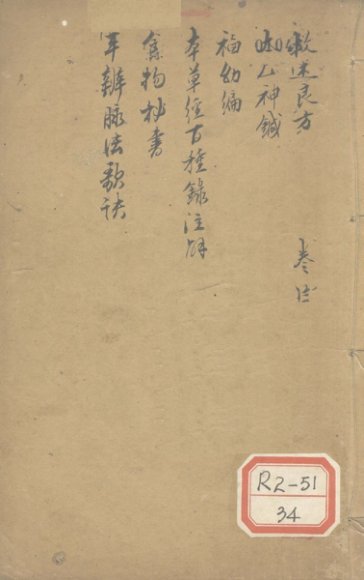 救迷良方
仙人神鍼
福幼編
本草經百種錄注解
食物秘書
平辨脉法歌訣
R2-51
34